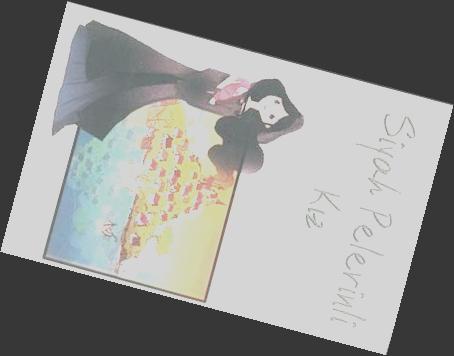 Siyah Pelerinli
Kız